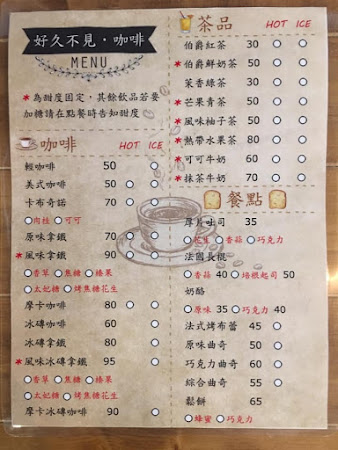 好久不見·咖啡
MENU
*為甜度固定，其餘飲品若要
加糖請在點餐時告知甜度
咖啡 HOT ICE
輕咖啡 50 ○
美式咖啡 50 ○ ○
卡布奇諾 70 ○ ○
○肉桂 ○可可
原味拿鐵 70 ○ ○
*風味拿鐵 90 ○ ○
○香草 ○焦糖 ○榛果
○太妃糖 ○烤焦糖花生
摩卡咖啡 80 ○ ○
冰磚咖啡 60 ○
冰磚拿鐵 80 ○
*風味冰磚拿鐵 95 ○
○香草 ○焦糖 ○榛果
○太妃糖 ○烤焦糖花生
摩卡冰磚咖啡 90 ○
茶品 HOT ICE
伯爵紅茶 50 ○ ○
*伯爵鮮奶茶 50 ○ ○
茉香綠茶 30 ○
*芒果青茶 50 ○
*風味柚子茶 50 ○ ○
*熱帶水果茶 80 ○ ○
*可可牛奶 70 ○ ○
*抹茶牛奶 70 ○ ○
餐點
厚片吐司 35
○花生 ○香蒜 ○巧克力
法國長棍
○香蒜 40 ○培根起司 50
奶酪
○原味 35 ○巧克力 40
法式烤布蕾 45 ○
原味曲奇 50 ○
巧克力曲奇 60 ○
綜合曲奇 55 ○
鬆餅 65
○蜂蜜 ○巧克力